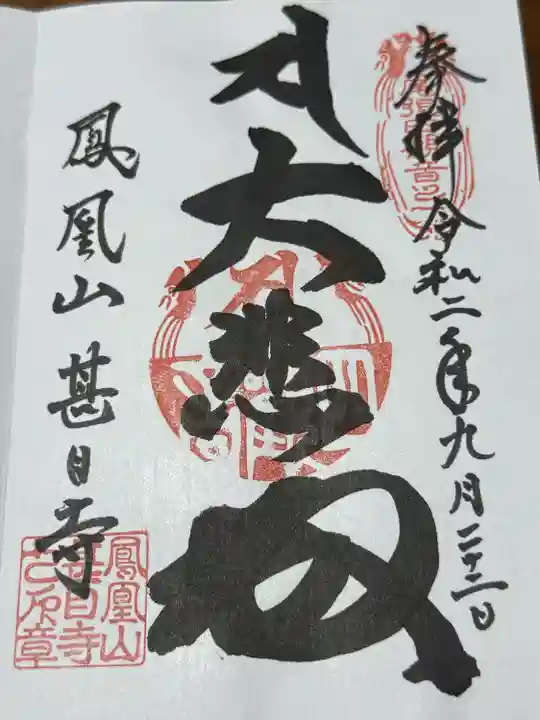 奉拝 令和二年九月二十二日
大悲殿
鳳凰山 甚目寺
鳳凰山
甚目寺
之印章